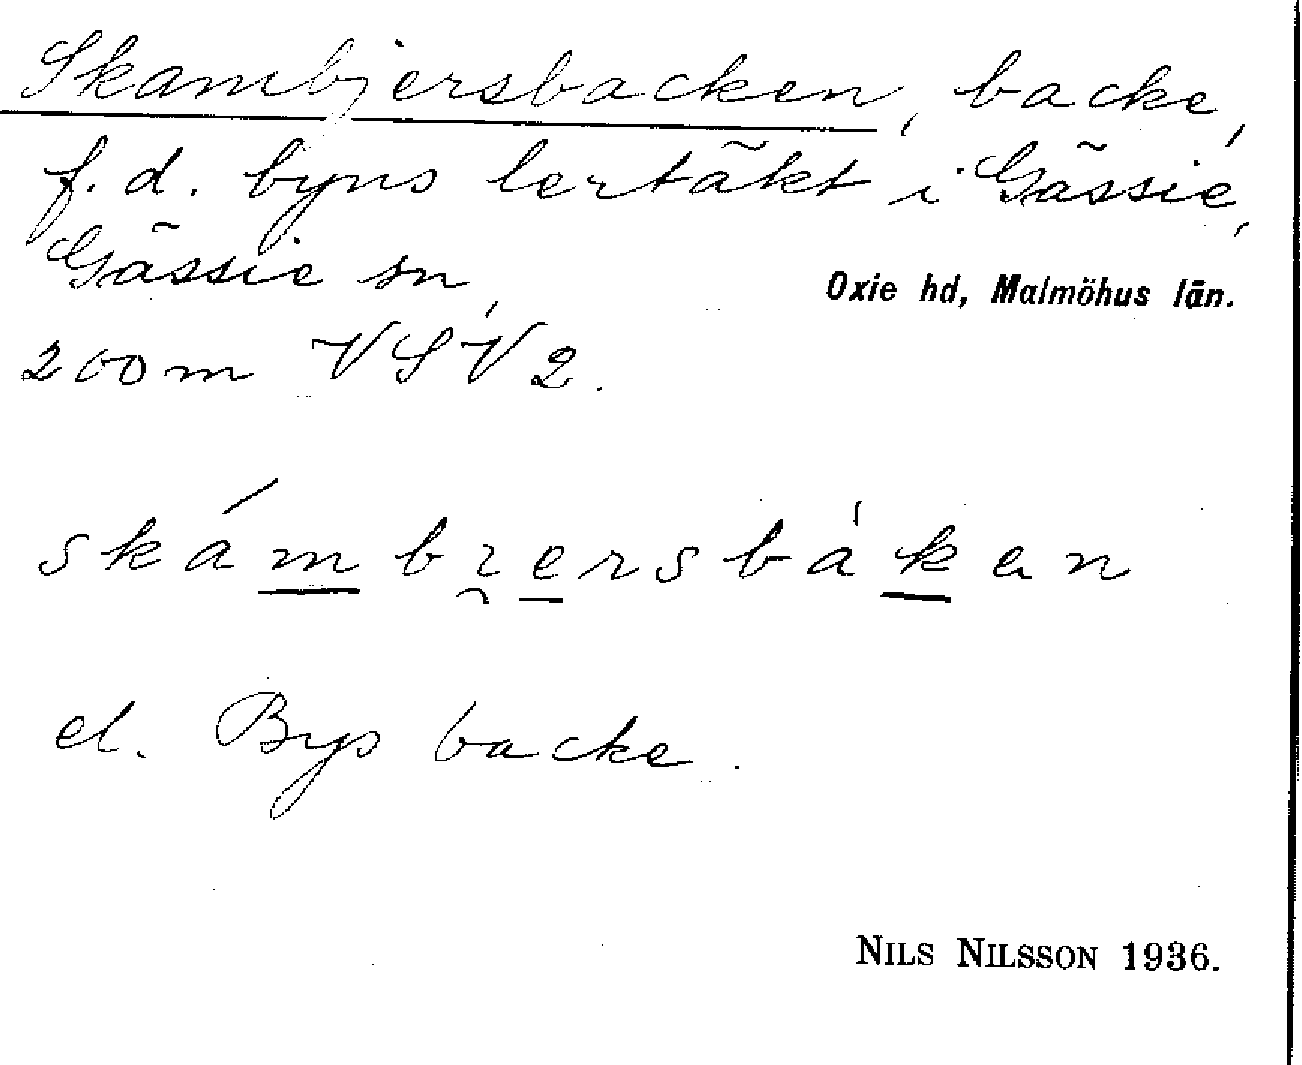 Skambjersbacken, backe,
f.d. byns lertäkt i Gässie,
Gässie sn,
Oxie hd, Malmöhus län.
200 m VSV 2.
skámbɿersbàkan
el. Bys backe.
NILS NILSSON 1936.